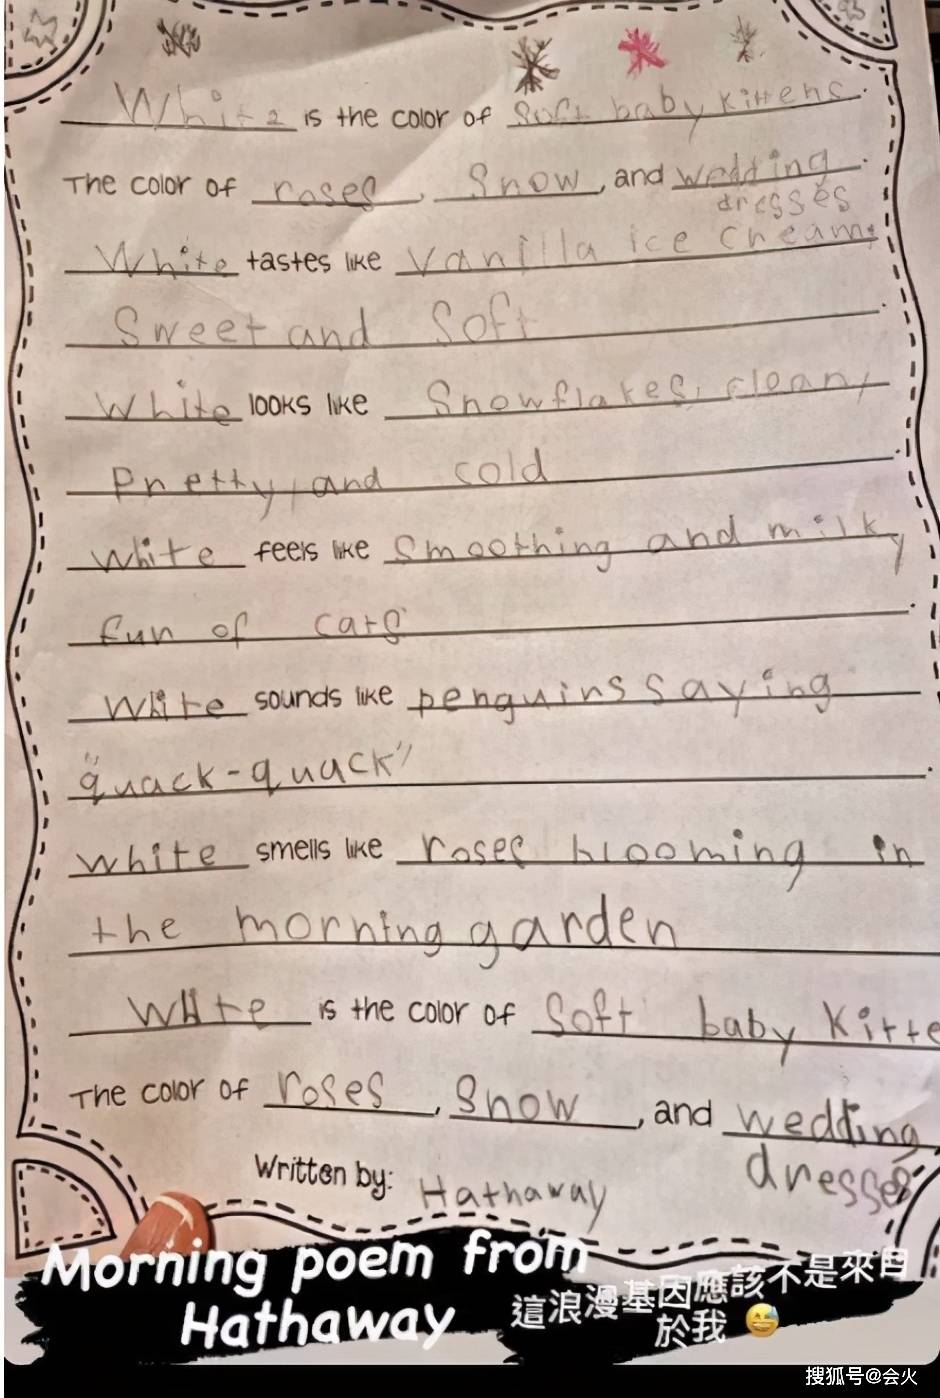 White is the color of soft baby kittens.
The color of roses, Snow, and wedding
dresses
White tastes like vanilla ice cream,
Sweet and Soft.
White looks like Snowflakes, clean,
Pretty, and cold.
White feels like Smoothing and milky
fun of cats.
White sounds like penguins saying
"quack-quack".
White smells like roses blooming in
the morning garden
White is the color of Soft baby kitte
The color of roses, Snow, and wedding
dresses
Written by: Hathaway
Morning poem from
Hathaway
這浪漫基因應該不是來自
於我 😅
搜狐号@会火